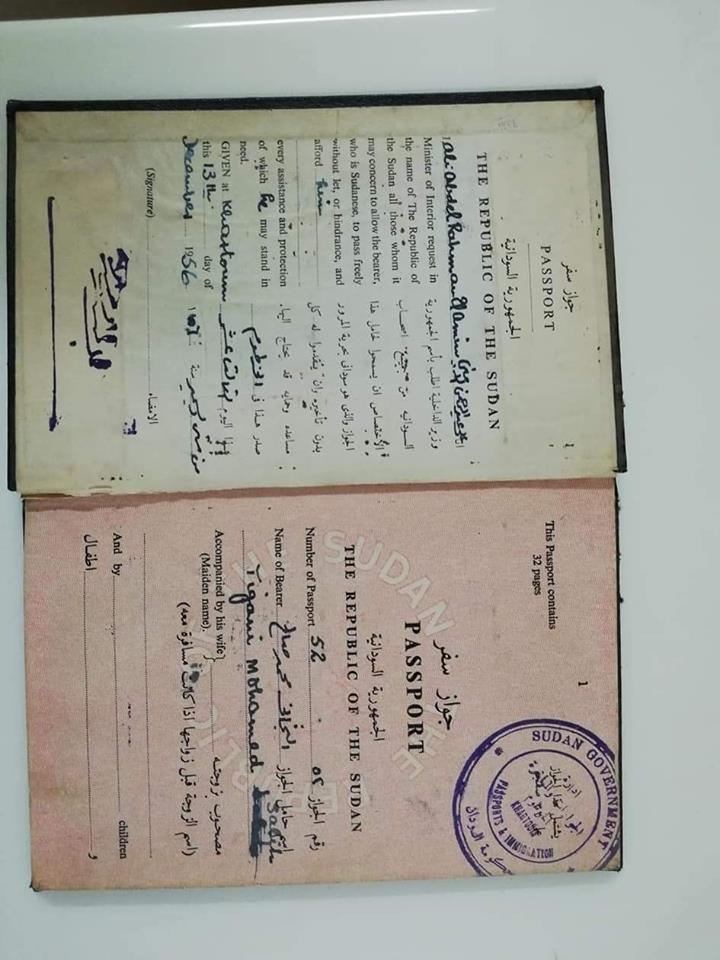 جواز سفر
PASSPORT
الجمهورية السودانية
THE REPUBLIC OF THE SUDAN
I Ali Abdel Rahman
Minister of Interior request in
the name of The Republic of
the Sudan all those whom it
may concern to allow the bearer,
who is Sudanese, to pass freely
without let, or hindrance, and
afford him
every assistance and protection
of which he may stand in
need.
GIVEN at Khartoum
this 13th day of
December 1956
(Signature)
انا
وزير الداخلية اطلب باسم الجمهورية
السودانيه من جميع اصحاب
الأختصاص ان يسمحوا لحامل هذا
الجواز والذى هو سودانى بحرية المرور
بدون تأخير وان يقدموا له كل
مساعده وحمايه قد يحتاج اليها.
صدر هذا فى الخرطوم
فى اليوم الثالث عشر
من ديسمبر سنة ١٩٥٦
الامضاء
This Passport contains
32 pages
1
SUDAN GOVERNMENT
حكومة السودان
PASSPORTS & IMMIGRATION
KHARTOUM
جواز سفر
PASSPORT
الجمهورية السودانية
THE REPUBLIC OF THE SUDAN
Number of Passport 52 رقم الجواز ٥٢
Name of Bearer التجانى محمد صالح اسم حامل الجواز
Tigani Mohamed Salih
Accompanied by his wife مصحوب بزوجته
(Maiden name) (اسم الزوجة قبل زواجها اذا كانت مسافرة معه)
And by children و
اطفال